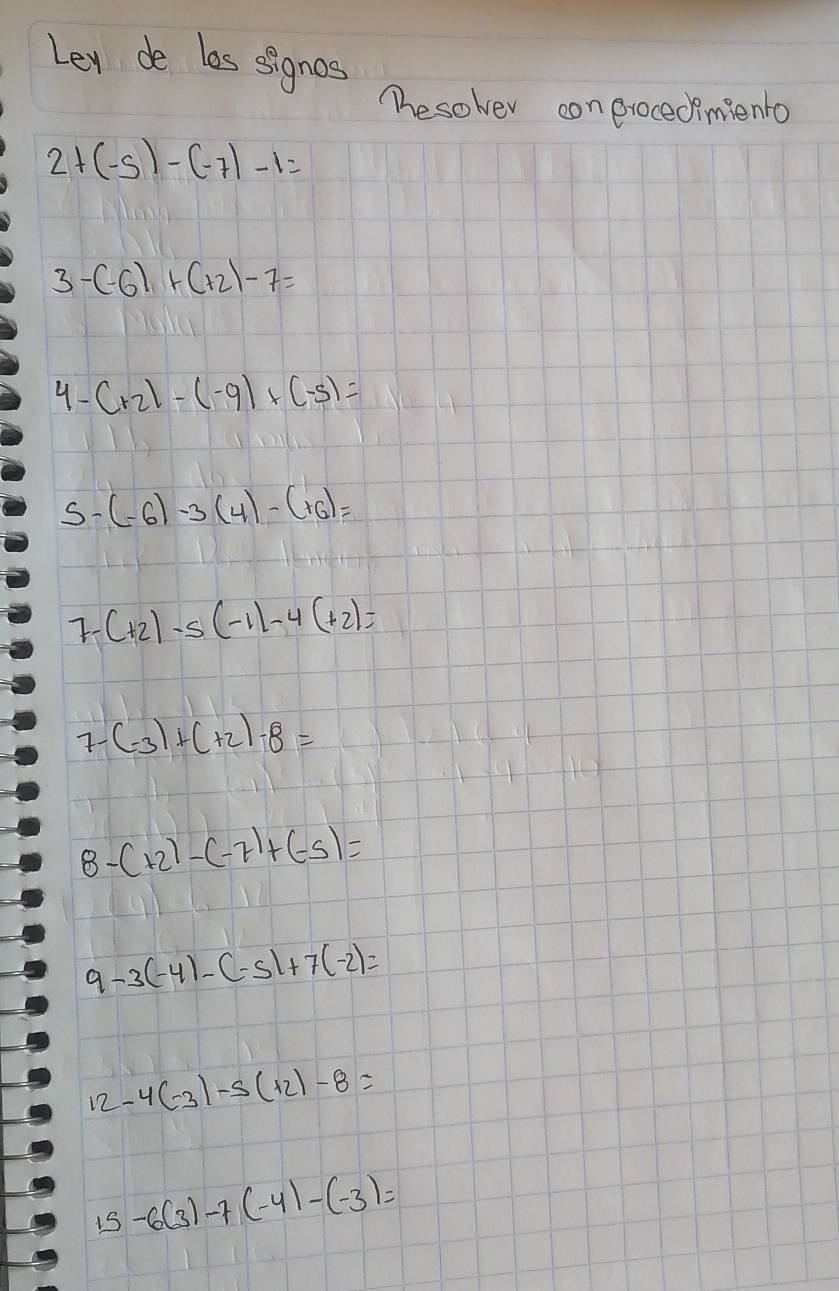 Ley de los signos
Resolver con procedimiento
2+(-5)-(-7)-1=
3-(-6)+(+2)-7=
4-(+2)-(-9)+(-5)=
5-(-6)-3(4)-(+6)=
7-(+2)-5(-1)-4(+2)=
7-(-3)+(+2)-8=
8-(+2)-(-7)+(-5)=
9-3(-4)-(-5)+7(-2)=
12-4(-3)-5(+2)-8=
15-6(3)-7(-4)-(-3)=